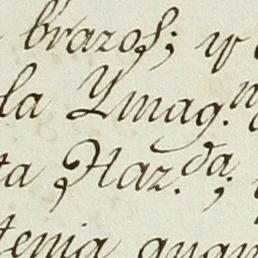 brazos; y
la Ymag.n
ta Haz.da;
tenia quan